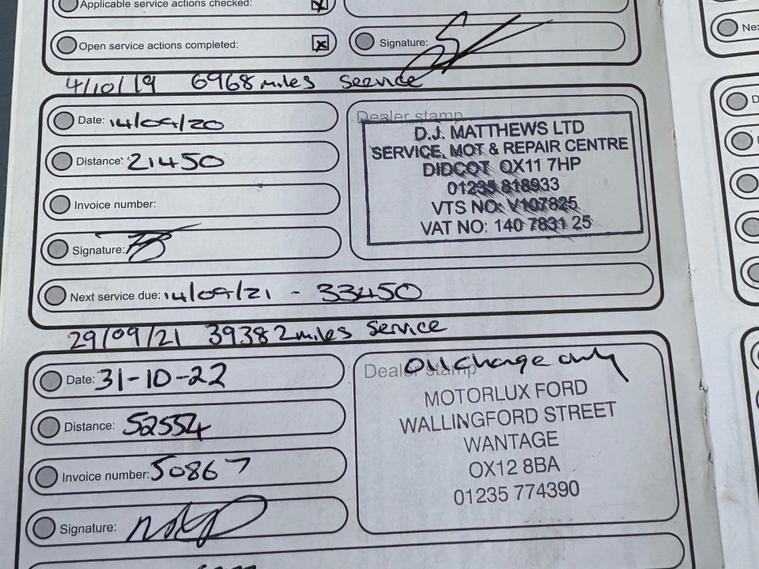 Applicable service actions checked:
Open service actions completed:
Signature:
4/10/19 6968 miles Service
Date: 14/09/20
Distance: 21450
Invoice number:
Signature:
Next service due: 14/09/21 - 33450
Dealer stamp
D.J. MATTHEWS LTD
SERVICE, MOT & REPAIR CENTRE
DIDCOT OX11 7HP
01235 818933
VTS NO: V107825
VAT NO: 140 7831 25
29/09/21 39382 miles Service
Date: 31-10-22
Distance: 52554
Invoice number: 50867
Signature:
Oil change only
Dealer stamp
MOTORLUX FORD
WALLINGFORD STREET
WANTAGE
OX12 8BA
01235 774390